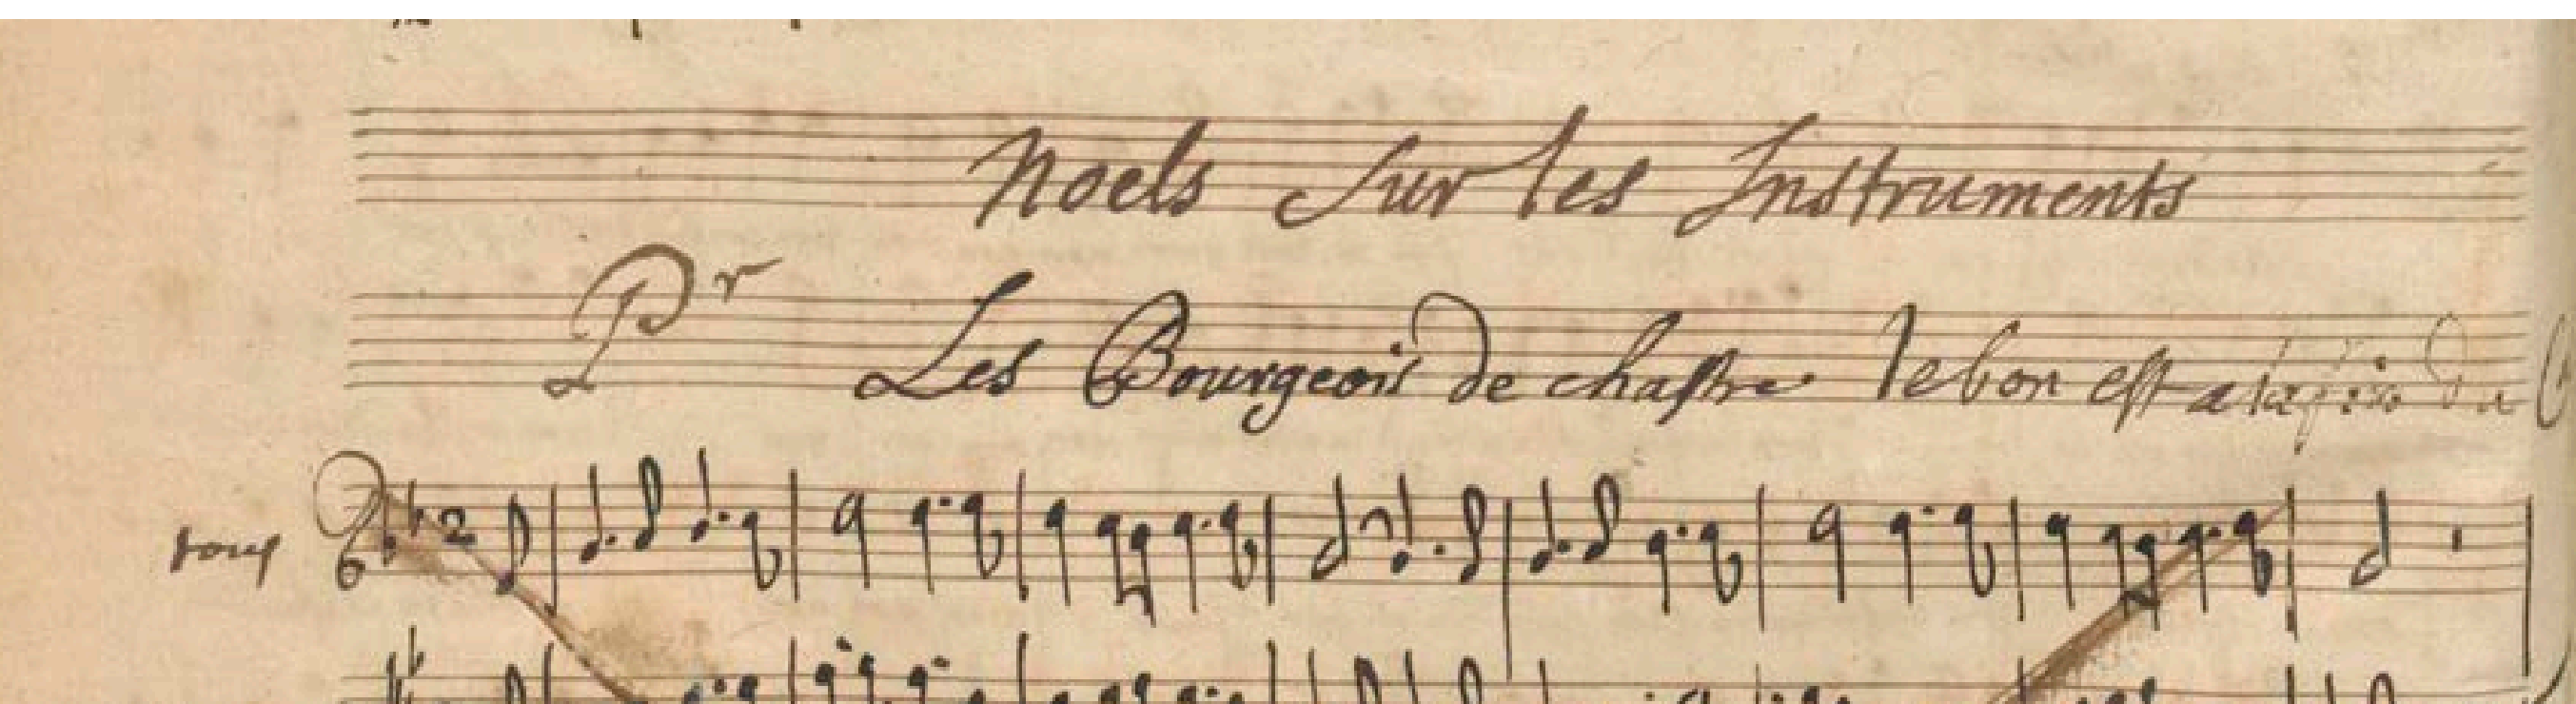 Noels Sur les Instruments
Pr
Les Bourgeois de chastre le bon est a la fin du
tous
2